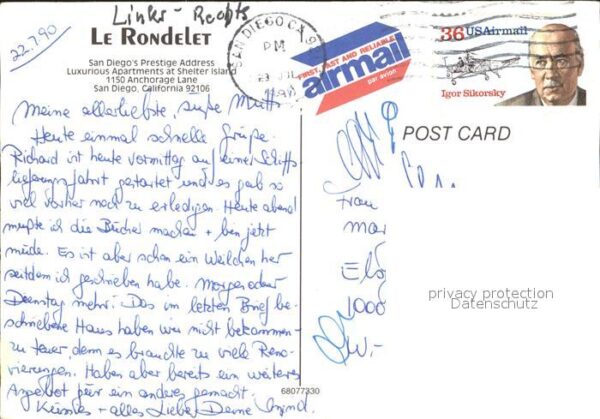 Links - Rechts
22.7.90
LE RONDELET
San Diego's Prestige Address
Luxurious Apartments at Shelter Island
1150 Anchorage Lane
San Diego, California 92106
SAN DIEGO CA
PM
FIRST, FAST AND RELIABLE
airmail
par avion
36 USAirmail
Igor Sikorsky
POST CARD
Meine allerliebste, süße Mutti,
Heute einmal schnelle Grüße.
Richard ist heute vormittag auf einer Schiffs
lieferungsfahrt gestartet und es gab so
viel vorher noch zu erledigen. Heute abend
mußte ich die Bücher machen + bin jetzt
müde. Es ist aber schon ein Weilchen her
seitdem ich geschrieben habe. Morgen oder
Dienstag mehr. Das im letzten Brief be-
schriebene Haus haben wir nicht bekommen-
zu teuer, denn es brauchte zu viele Reno-
vierungen. Haben aber bereits ein weiteres
Angebot für ein anderes gemacht.
Küssles + alles Liebe Deine
Frau
Mar
Elb
1000
privacy protection
Datenschutz
68077330